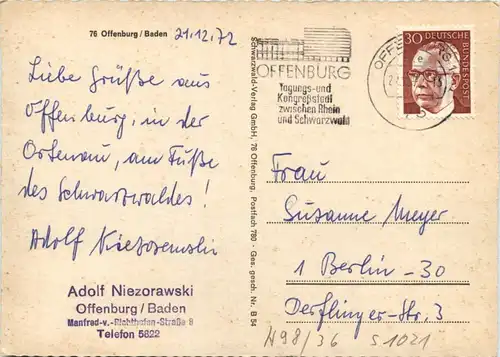 76 Offenburg/Baden
21.12.72
Liebe Grüße aus
Offenburg, in der
Ortenau, am Fuße
des Schwarzwaldes!
Adolf Niezorawski
Adolf Niezorawski
Offenburg/Baden
Manfred-v.-Richthofen-Straße 8
Telefon 5822
Schwarzwald-Verlag GmbH, 76 Offenburg, Postfach 780 · Ges. gesch. Nr. B 54
OFFENBURG
Tagungs-und
Kongreßstadt
zwischen Rhein
und Schwarzwald
30 DEUTSCHE
BUNDESPOST
Frau
Susanne Meyer
1 Berlin-30
Derflinger-Str. 3
N98/36 S 1021